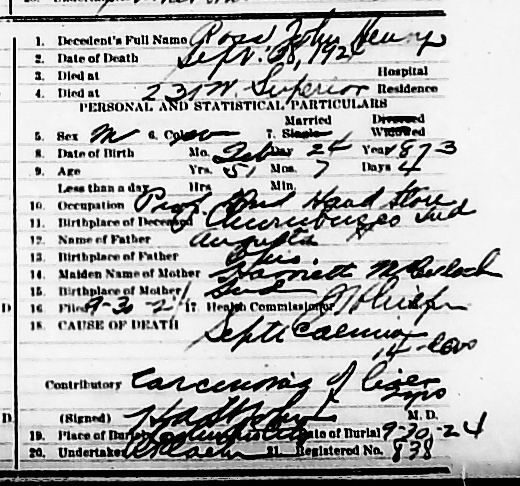 1. Decedent's Full Name Ross John Henry
2. Date of Death Sept. 28, 1924
3. Died at Hospital
4. Died at 231 W. Superior Residence
PERSONAL AND STATISTICAL PARTICULARS
Married Divorced
5. Sex M 6. Color W 7. Single Widowed
8. Date of Birth Mo. Feb Day 24 Year 1873
9. Age Yrs. 51 Mos. 7 Days 4
Less than a day Hrs Min.
10. Occupation Prop. 2nd Hand Store
11. Birthplace of Decedent Churubusco Ind
12. Name of Father
13. Birthplace of Father Ohio
14. Maiden Name of Mother Harriett McCulloch
15. Birthplace of Mother Ind
16 Filed 9-30-24 17 Health Commissioner
18. CAUSE OF DEATH
Septicaemia
14-days
Contributory Carcinoma of liver
(Signed) M. D.
19. Place of Burial Date of Burial 9-30-24
20. Undertaker 21. Registered No. 838